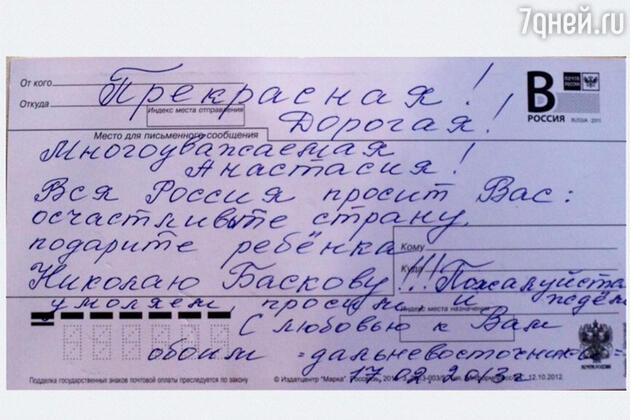 7дней.ru
Прекрасная!
От кого
Откуда
Индекс места отправления
B
ПОЧТА РОССИИ
РОССИЯ
RUSSIA 2011
Дорогая!
Место для письменного сообщения
Многоуважаемая
Анастасия!
Вся Россия просит Вас:
осчастливьте страну,
подарите ребёнка
Кому
Николаю Баскову!!! Пожалуйста
Куда
умоляем, просим, и ждём
Индекс места назначения
С любовью к Вам
обоим = дальневосточники =
17.02.2013г
Подделка государственных знаков почтовой оплаты преследуется по закону
© Издатцентр "Марка".
12.10.2012.